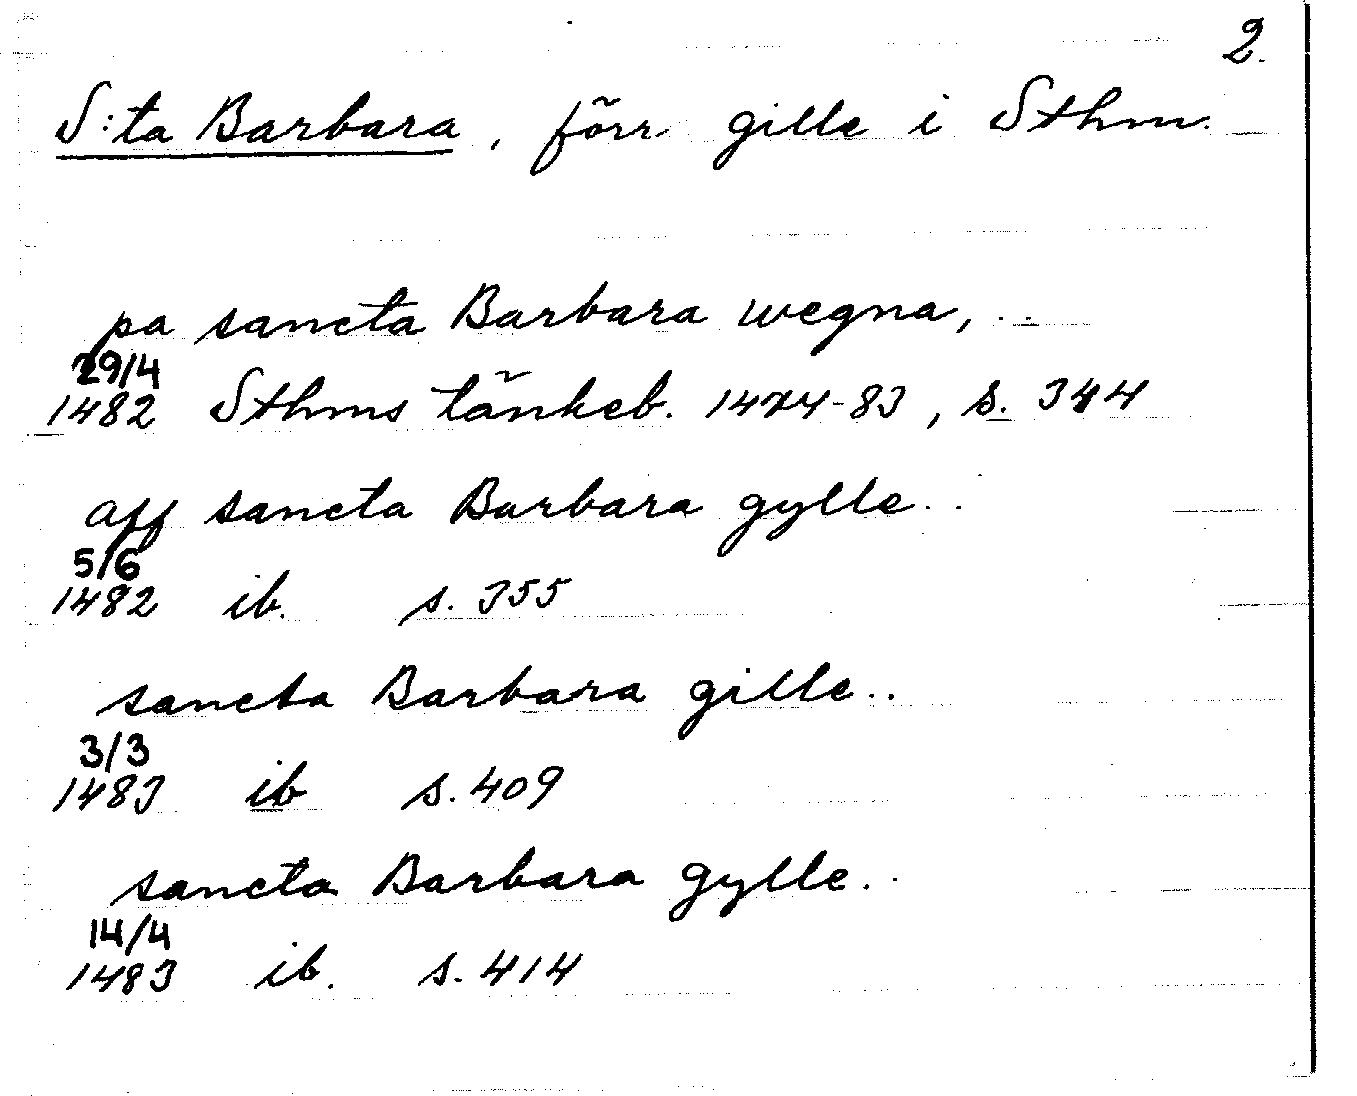 2.
S:ta Barbara, förr gille i Sthm.
pa sancta Barbara wegna, ..
29/4
1482 Sthms tänkeb. 1474-83, s. 344
aff sancta Barbara gylle ..
5/6
1482 ib. s. 355
sancta Barbara gille ..
3/3
1483 ib s. 409
sancta Barbara gylle ..
14/4
1483 ib. s. 414